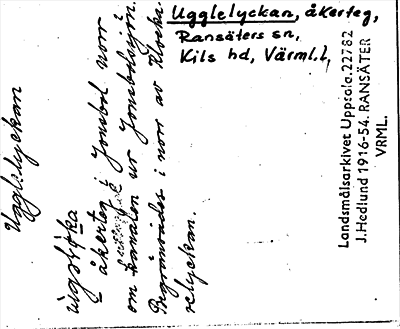 Ugglelyckan, åkerteg,
Ransäters sn,
Kils hd, Värml.l,
Ugglelyckan
åkerten i Jonsbol norr
om kanalen ur Jonsbolssjön.
Begränsades i norr av Klocka-
relyckan.
Landsmålsarkivet Uppsala. 22782
J. Hedlund 1916-54. RANSÄTER
VRML.